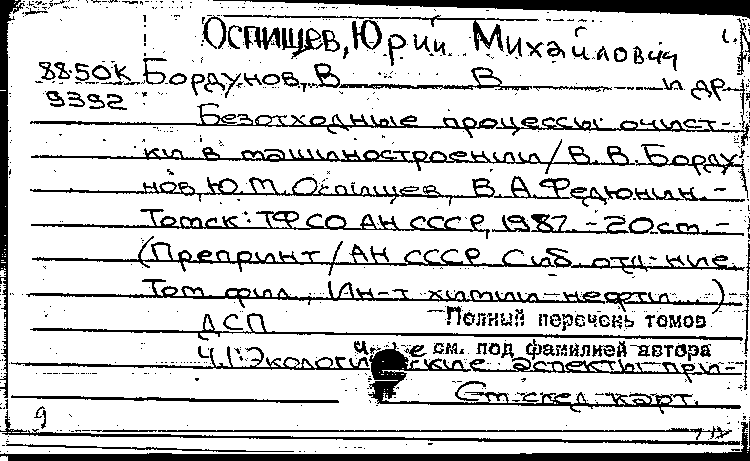 Оспищев, Юрий Михайлович
8850к Бордунов, В В и др
9392
Безотходные процессы очист-
ки в машиностроении / В. В. Борду
нов, Ю. М. Оспищев, В. А. Федюнин. -
Томск: ТФ СО АН СССР, 1987. - 20 см. -
(Препринт / АН СССР Сиб. отд-ние
Том фил., Ин-т химии нефти...)
ДСП Полный перечень томов
см. под фамилией автора
Ч.1: Экологические аспекты при-
См след. карт.
9